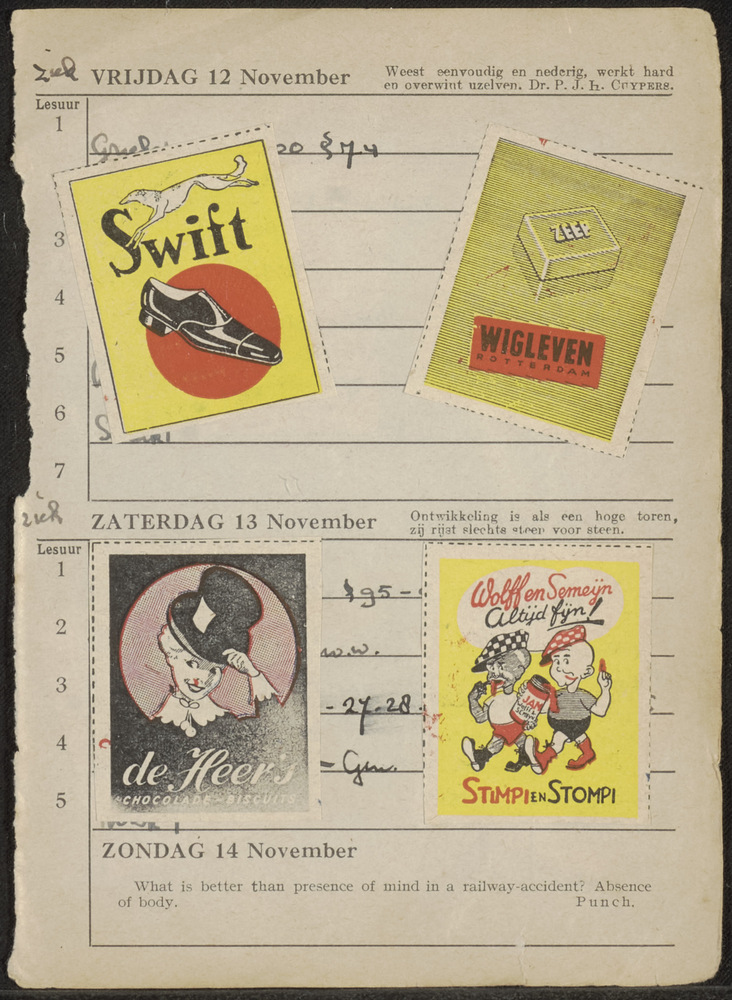 ziek
VRIJDAG 12 November
Weest eenvoudig en nederig, werkt hard
en overwint uzelven. Dr. P. J. H. CUYPERS.
Lesuur
1
20 § 74
Swift
ZEEP
WIGLEVEN
ROTTERDAM
3
4
5
6
7
ziek
ZATERDAG 13 November
Ontwikkeling is als een hoge toren,
zij rijst slechts steen voor steen.
Lesuur
1
§ 95-
2
3
- 27-28
4
- Gym.
5
de Heer's
CHOCOLADE - BISCUITS
Wolff en Semeijn
Altijd fijn!
JAM
STIMPI EN STOMPI
ZONDAG 14 November
What is better than presence of mind in a railway-accident? Absence
of body.
Punch.